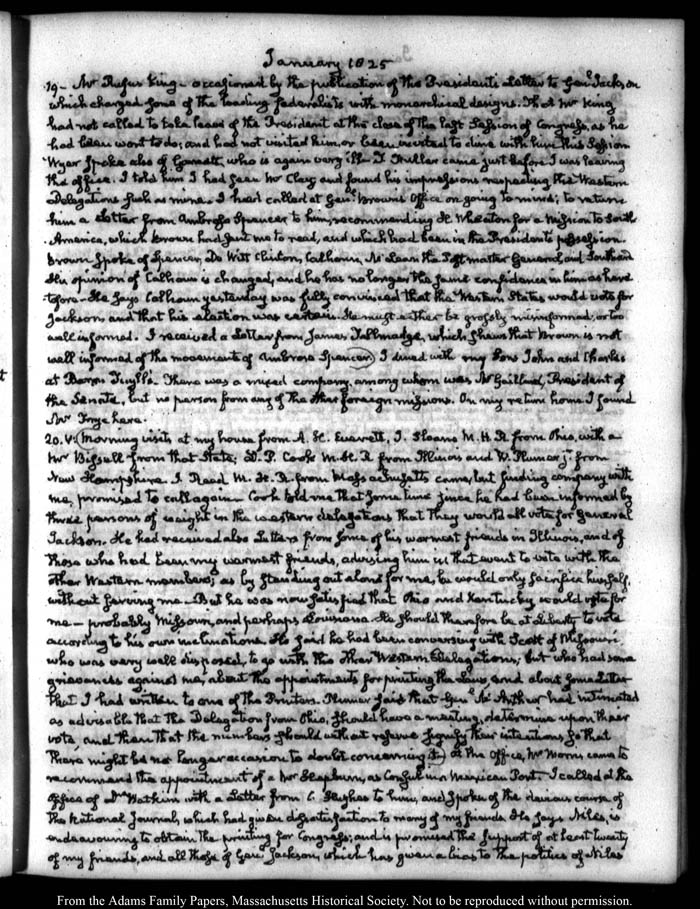 January 1825
19- Mr Rufus King- occasioned by the publication of the President's Letter to Genl Jackson
which charged some of the leading federalists with monarchical designs. That Mr King
had not called to take leave of the President at the close of the last Session of Congress, as he
had been wont to do; and had not visited him, or been invited to dine with him this Session
Wyer spoke also of Garnett, who is again very ill- I. came just before I was leaving
the office. I told him I had seen Mr Clay and found his impressions respecting the Western
Delegations such as mine. I had called at Genl Brown's Office on going to mine; to return
him a Letter from Ambrose Spencer to him, recommending H. Wheaton for a Mission to South
America, which Brown had sent me to read, and which had been in the President's possession.
Brown spoke of Spencer, De Witt Clinton, Calhoun, McLean the Postmaster General, and Southard
His opinion of Calhoun is changed, and he has no longer the same confidence in him as here
tofore- He says Calhoun yesterday was fully convinced that the Western States would vote for
Jackson, and that his election was certain. He must either be grossly misinformed, or too
well informed. I received a Letter from James Tallmadge, which shews that Brown is not
well informed of the movements of Ambrose Spencer. I dined with my Sons John and Charles
at Baron Tuyll's. There was a mixed company, among whom was Mr Gaillard, President of
the Senate, but no person from any of the other foreign missions. On my return home I found
Mr Frye here.
20. V. Morning visits at my house from A. H. Everett, J. Sloane M.H.R. from Ohio, with a
Mr Bissell from that State; D. P. Cook M.H.R. from Illinois and W. Plumer jr. from
New Hampshire. J. Reed M.H.R. from Massachusetts came, but finding company with
me, promised to call again. Cook told me that some time since he had been informed by
three persons of weight in the western delegations that they would all vote for General
Jackson. He had received also Letters from some of his warmest friends in Illinois, and of
those who had been my warmest friends, advising him in that event to vote with the
other Western members; as by standing out alone for me, he would only sacrifice himself,
without serving me- But he was now satisfied that Ohio and Kentucky would vote for
me- probably Missouri, and perhaps Louisiana. He should therefore be at Liberty to vote
according to his own inclinations. He said he had been conversing with Scott of Missouri
who was very well disposed, to go with the other Western Delegations; but who had some
grievances against me, about the appointments for printing the Laws, and about some Letter
that I had written to one of the Printers. Plumer said that Genl McArthur had intimated
as advisable that the Delegation from Ohio, should have a meeting, determine upon their
vote, and then that the members should without reserve signify their intentions, so that
there might be no longer occasion to doubt concerning it. At the Office, Mr came to
recommend the appointment of a Mr Hepburn, as Consul in a Mexican Port. I called at the
Office of Dr Watkins with a Letter from C. Hughes to him, and spoke of the devious course of
the National Journal, which had given dissatisfaction to many of my friends. He says Niles, is
endeavouring to obtain the printing for Congress; and is promised the support of at least twenty
of my friends, and all those of Genl Jackson, which has given a bias to the politics of Niles
From the Adams Family Papers, Massachusetts Historical Society. Not to be reproduced without permission.